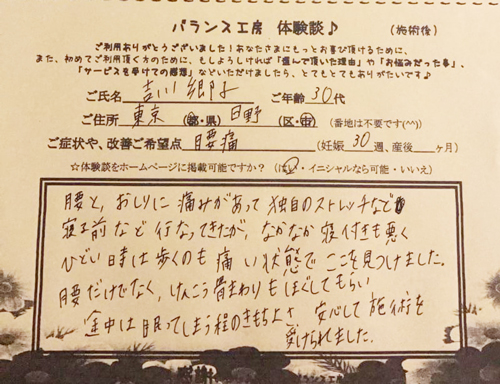 バランス工房 体験談♪ (施術後)
ご利用ありがとうございました！あなたさまにもっとお喜び頂けるために、
また、初めてご利用頂く方のために、もしよろしければ「選んで頂いた理由」や「お悩みだった事」、
「サービスを受けての感想」などいただけましたら、とてもとてもありがたいです♪
ご氏名 吉川 郷子 ご年齢 30代
ご住所 東京 (都・県) 日野 (区・市) (番地は不要です(^^))
ご症状や、改善ご希望点 腰痛 (妊娠 30 週、産後 ヶ月)
☆体験談をホームページに掲載可能ですか？ (はい・イニシャルなら可能・いいえ)
腰と、おしりに痛みがあって独自のストレッチなど
寝る前など行なってきたが、なかなか寝付きも悪く
ひどい時は歩くのも痛い状態でここを見つけました。
腰だけでなく、けんこう骨まわりもほぐしてもらい
途中は眠ってしまう程のきもちよさ 安心して施術を
受けられました。